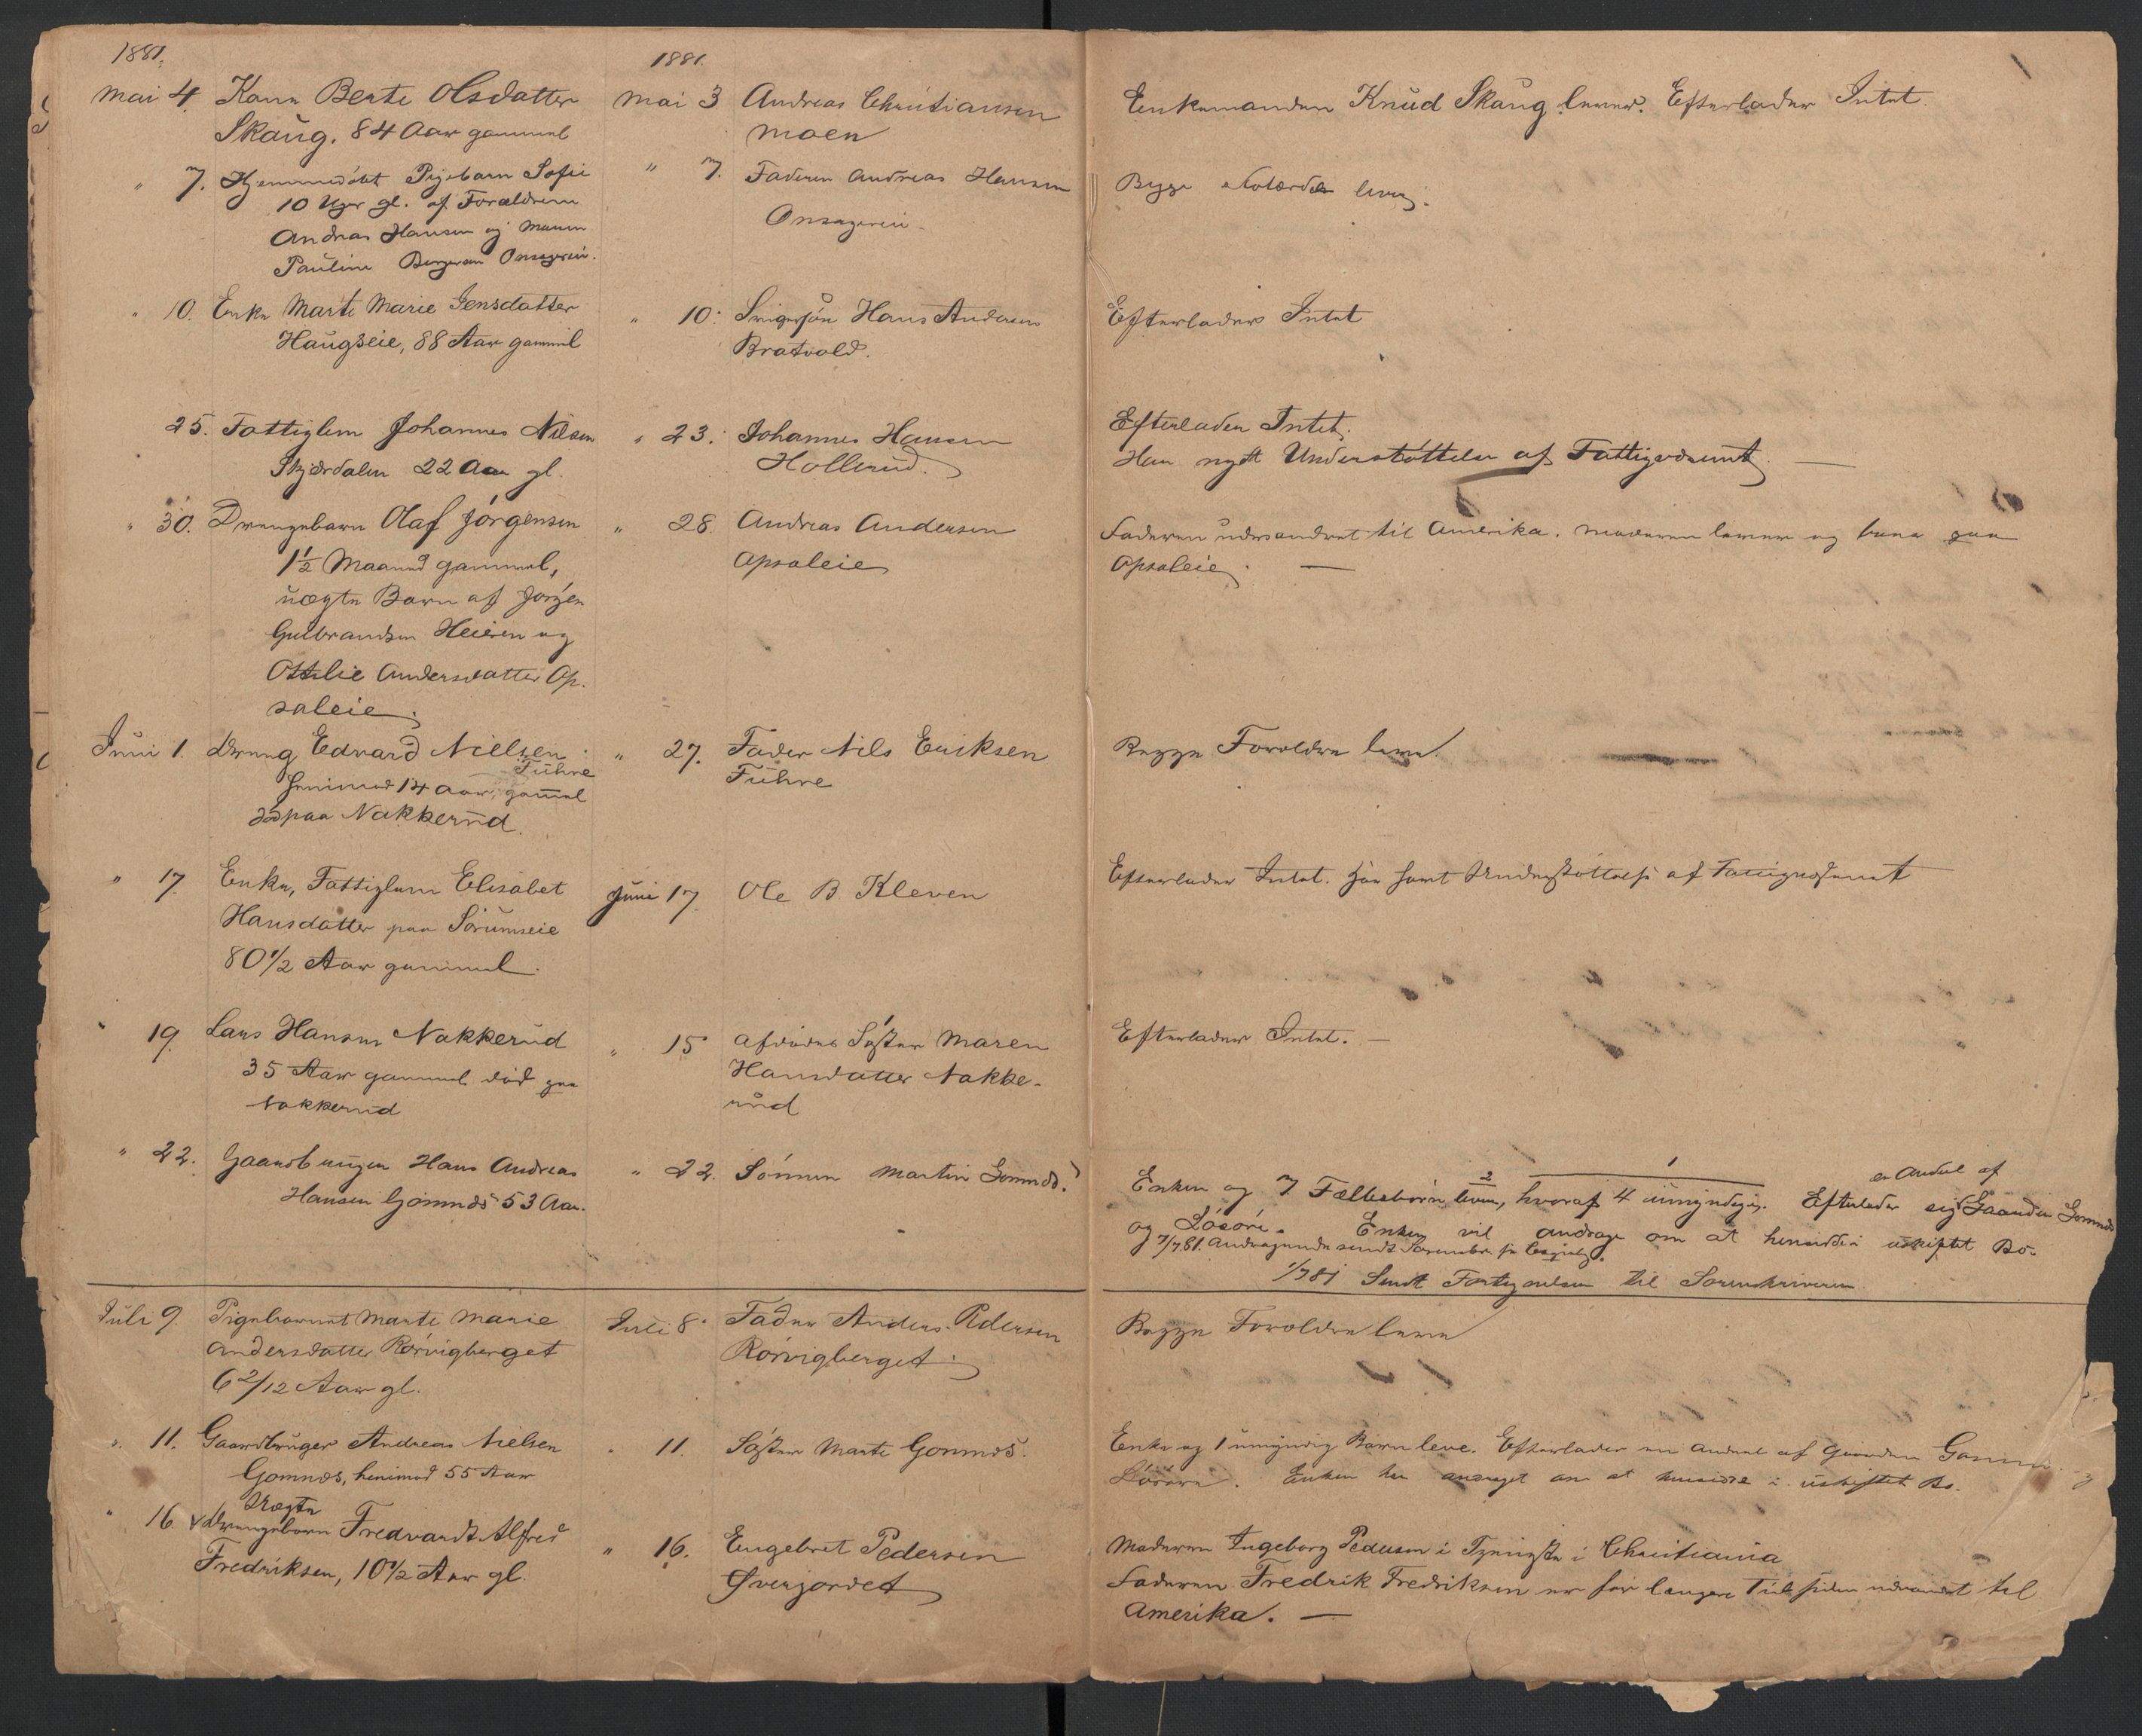 1881.
Mai 4. Kone Berte Olsdatter
Skaug. 84 Aar gammel
1881.
Mai 3 Andreas Christiansen
Moen
Enkemanden Knud Skaug lever. Efterlader Intet.
" 7. Hjemmedøbt Pigebarn Sofie
10 Uger gl. af Forældrene
Andreas Hansen og Maren
Pauline Onsagereie.
" 7. Faderen Andreas Hansen
Onsagereie.
Begge Forældre lever.
" 10. Enke Marte Marie Jensdatter
Haugseie, 88 Aar gammel
" 10. Svigersøn Hans Andersen
Bratvold.
Efterlader Intet
25. Fattiglem Johannes Nilsen
Skjærdalen 22 Aar gl.
" 23. Johannes Hansen
Hollerud.
Efterlader Intet.
Har nydt Understøttelse af Fattigvæsenet. —
" 30. Drengebarn Olaf Jørgensen
1½ Maaned gammel,
uægte Barn af Jørgen
Gulbrandsen Heieren og
Ottilie Andersdatter Op-
saleie.
" 28. Andreas Andersen
Opsaleie
Faderen udvandret til Amerika. Moderen lever og bor paa
Opsaleie. —
Juni 1. Dreng Edvard Nielsen
Fuhre
henimod 14 Aar gammel
død paa Nakkerud.
" 27. Fader Nils Eriksen
Fuhre
Begge Forældre lever.
" 17. Enke, Fattiglem Elisabet
Hansdatter paa Sørumseie
80 1/2 Aar gammel.
Juni 17. Ole B. Kleven
Efterlader Intet. Har havt Understøttelse af Fattigvæsenet
" 19. Lars Hansen Nakkerud
35 Aar gammel død paa
Nakkerud
" 15 Afdødes Søster Maren
Hansdatter Nakke-
rud
Efterlader Intet. —
" 22. Gaardbruger Hans Andreas
Hansen Gomnæs 53 Aar.
" 22. Sønnen Martin Gomnæs.
2 1 en Andel af
Enken og 7 Fællesbørn lever, hvoraf 4 umyndige. Efterlader sig Gaarden Gomnæs
og Løsøre. Enken vil andrage om at hensidde i uskiftet Bo.
7/7 81. Andragende sendt Sorenskr.
1/7 81 Sendt Fortegnelsen til Sorenskriveren
Juli 9. Pigebarnet Marte Marie
Andersdatter Rørvigberget
6 2/12 Aar gl.
Juli 8. Fader Anders Pedersen
Rørvigberget.
Begge Forældre lever
" 11. Gaardbruger Andreas Nielsen
Gomnæs, henimod 55 Aar
" 11. Søster Marte Gomnæs.
Enke og 1 umyndig Barn lever. Efterlader en Andel af Gaarden Gomnæs og
Løsøre. Enken har andraget om at hensidde i uskiftet Bo.
Uægte
" 16 Drengebarn Fredvardt Alfred
Fredriksen, 10 1/2 Aar gl.
" 16. Engebret Pedersen
Øverjordet
Moderen Ingeborg Pedersen i Tjeneste i Christiania
Faderen Fredrik Fredriksen er for længere Tid siden udvandret til
Amerika. —